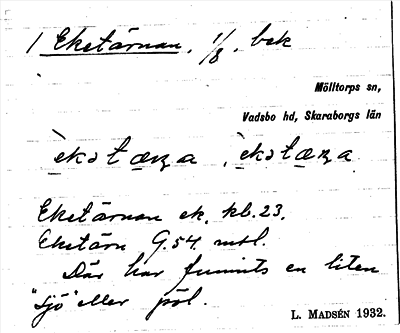 1 Eketärnan, 1/8, bek
Mölltorps sn,
Vadsbo hd, Skaraborgs län
Eketärnan ek. kb. 23.
Eketärn G.54 mtl.
Där har funnits en liten
"sjö" eller pöl.
L. MADSÉN 1932.